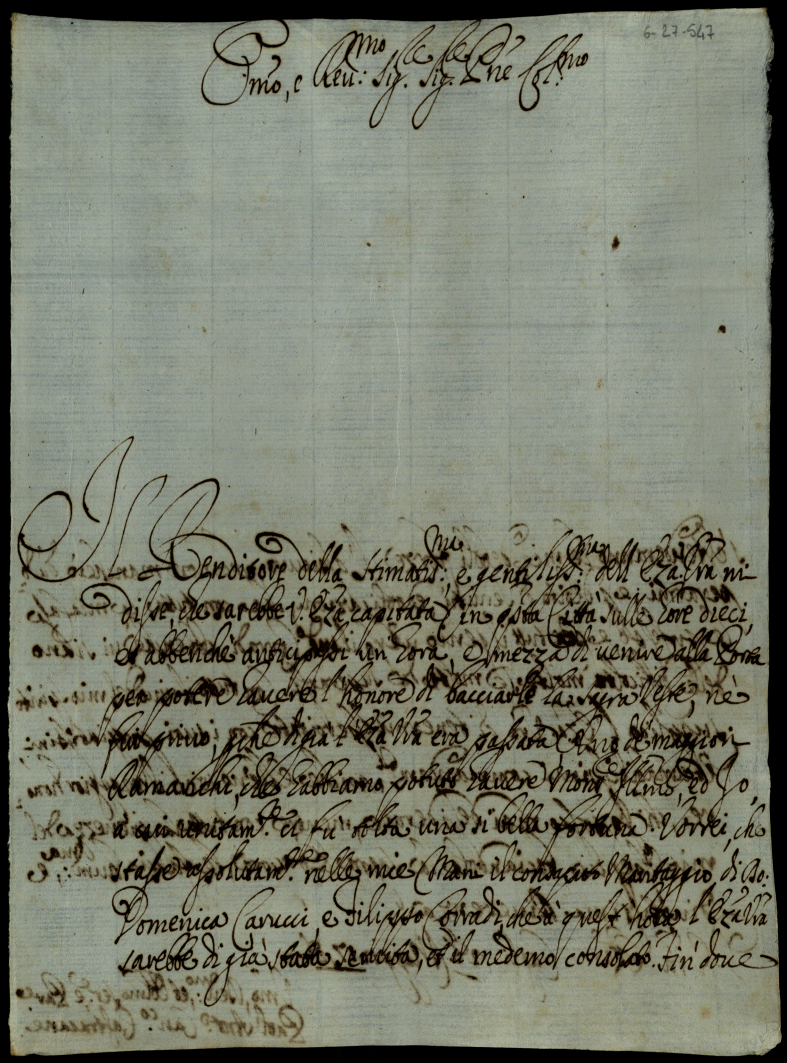 6-27-547
Emo, e Reu:mo Sig.re Sig.re Pne Col.mo
Il Renditore della stimatis:ma, e gentiliss:ma dell'Eza Vra mi
disse, che sarebbe V. Eza capitata in qsta Città sulle hore dieci,
et abbenche anticipassi un hora, e mezza di uenire alla Porta
per potere hauere l'honore di bacciarle la sacra Veste, ne
fui priuo, pche di già l'Eza Vra era passata. Uno de maggiori
Ramarichi, che habbiamo potuto hauere Monsr , ed Io,
a cui unitam.te ci fù tolta una si bella fortuna. Vorrei, che
stasse assolutam.te nelle mie Mani il Maritaggio di
Domenica Carucci, e Filippo Corradi, che à quest'hora l'Eza Vra
sarebbe di già stata seruita, et il medemo consolato. Fin doue